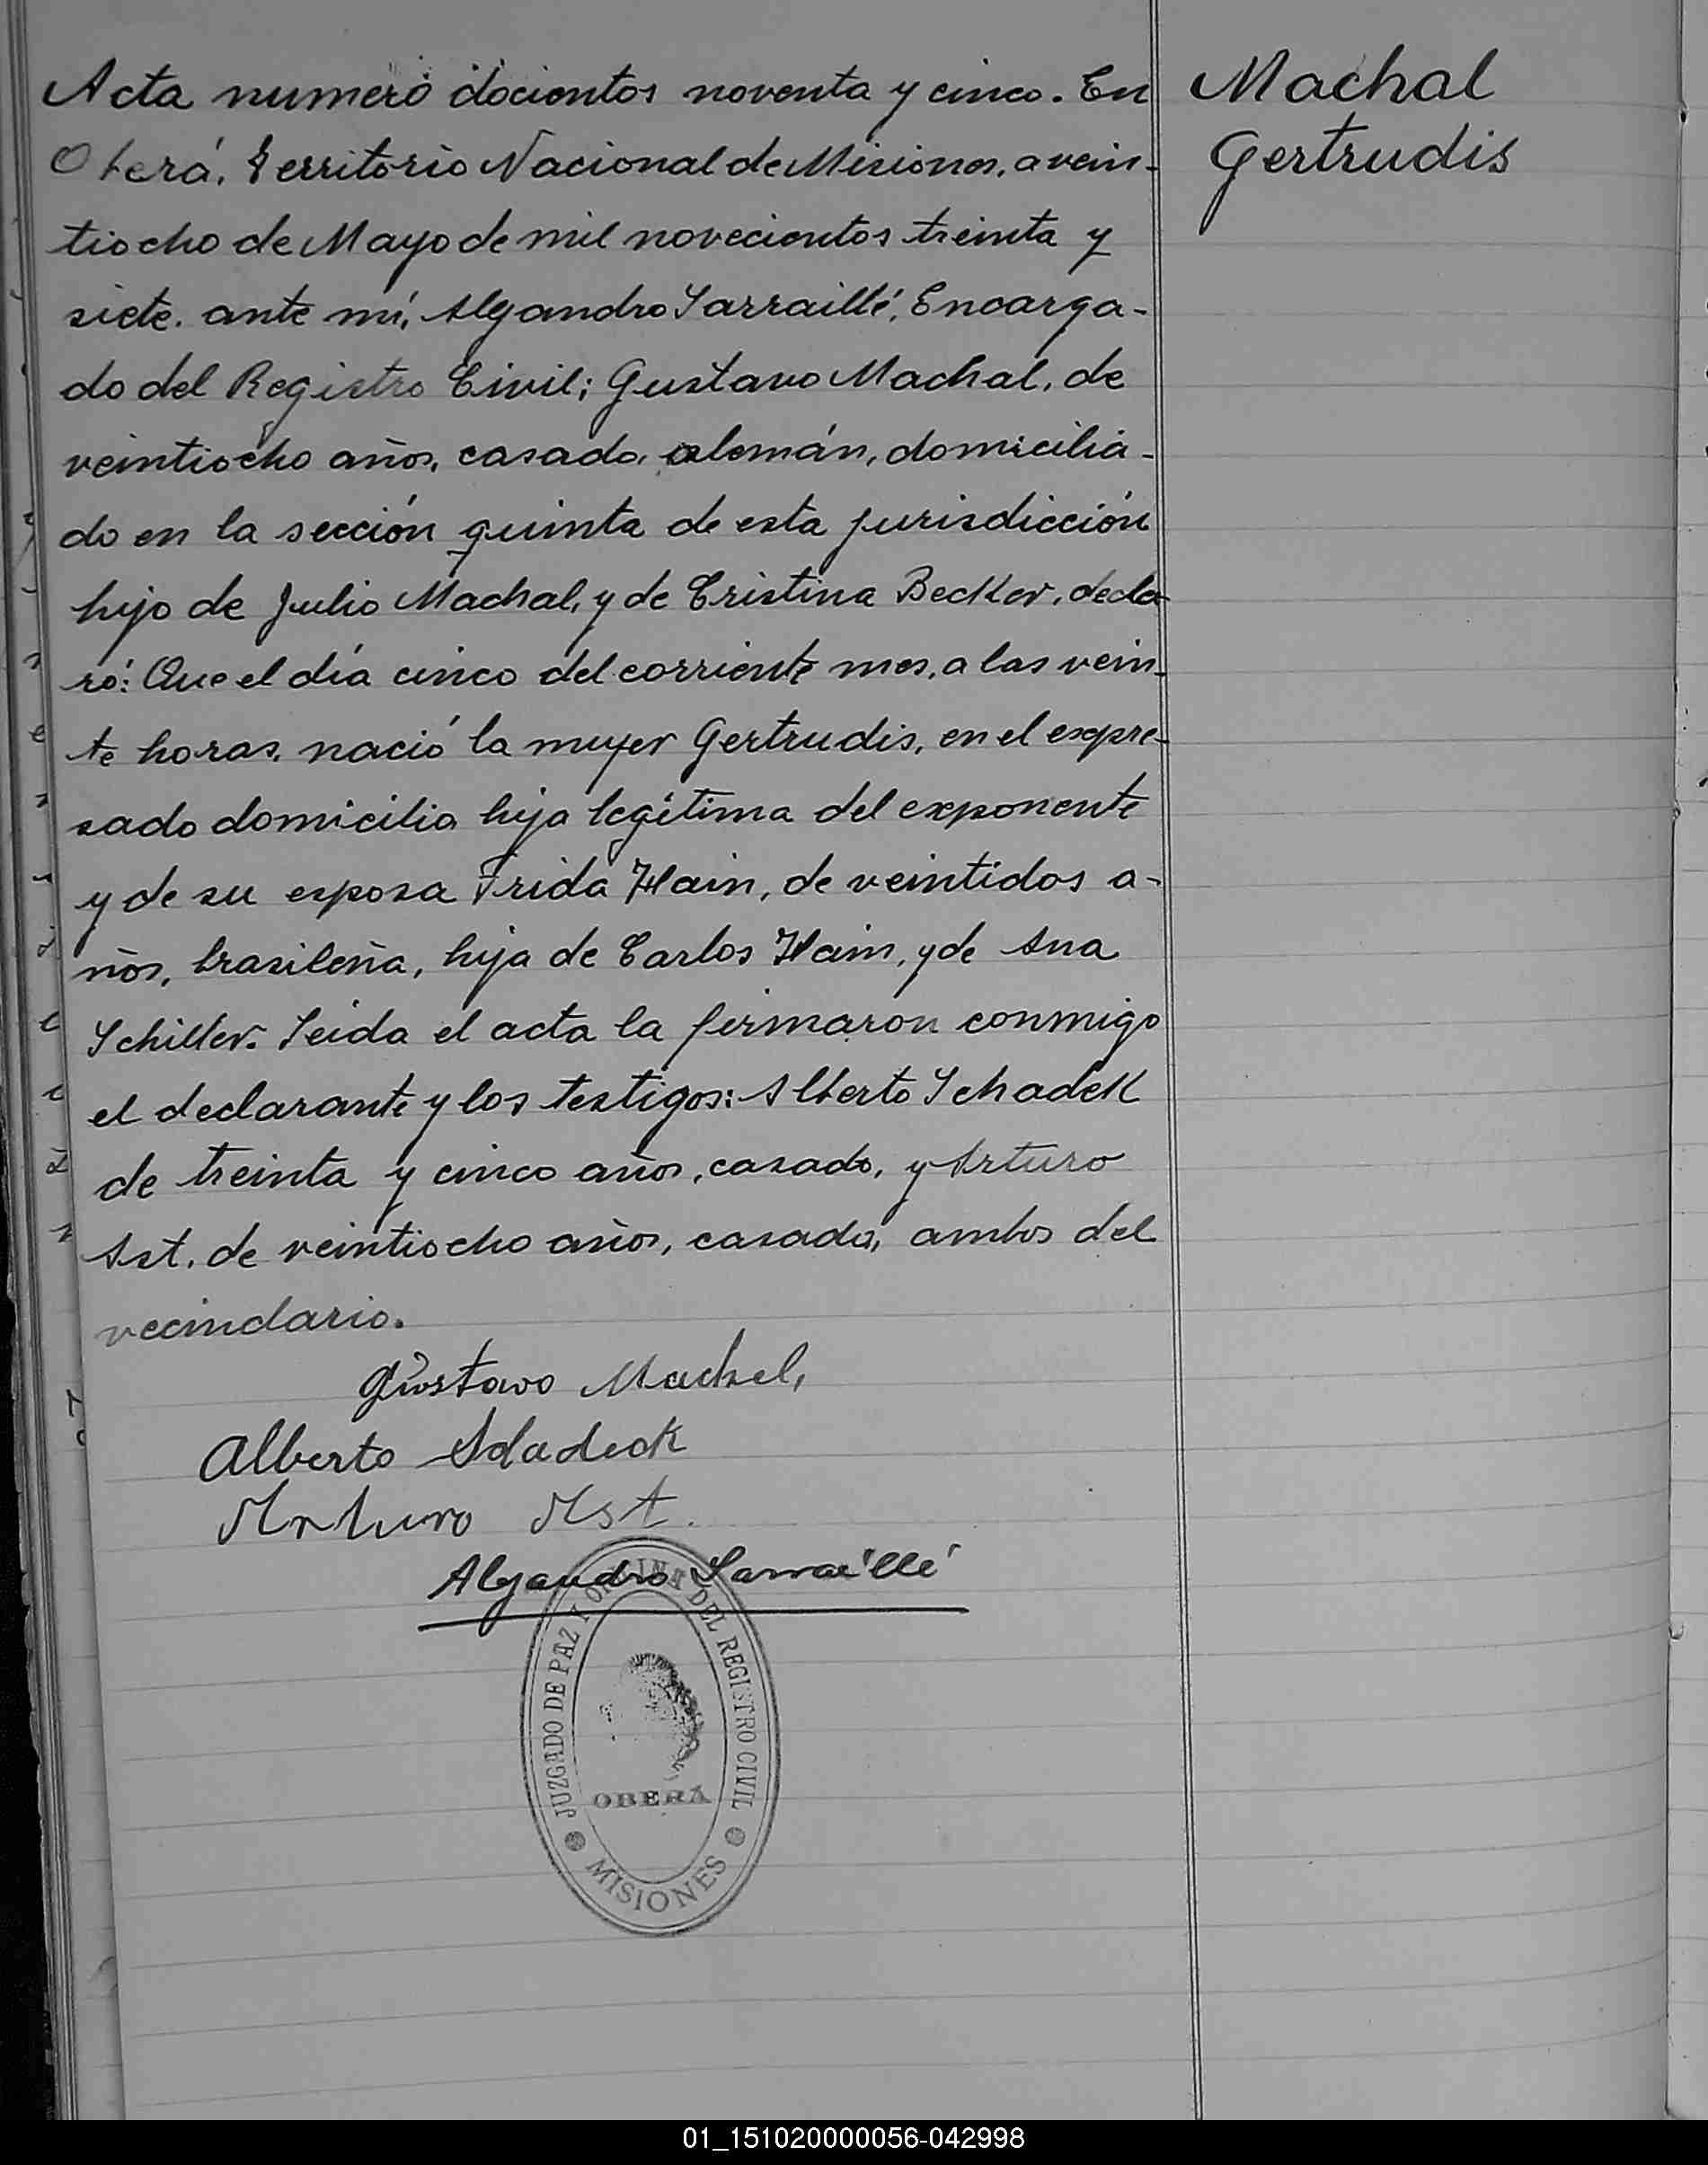 Acta numero docientos noventa y cinco. En
Oberá, Territorio Nacional de Misiones, a vein-
tiocho de Mayo de mil novecientos treinta y
siete. ante mí, Alejandro Sarraillé, Encarga-
do del Registro Civil; Gustavo Machal, de
veintiocho años, casado, alemán, domicilia-
do en la sección quinta de esta jurisdicción
hijo de Julio Machal, y de Cristina Becker, decla
ró: Que el día cinco del corriente mes, a las vein-
te horas, nació la mujer Gertrudis, en el expre-
sado domicilio hija legítima del exponente
y de su esposa Frida Hain, de veintidos a-
ños, brasileña, hija de Carlos Hain, y de Ana
Schiller. Leida el acta la firmaron conmigo
el declarante y los testigos: Alberto Schadek
de treinta y cinco años, casado, y Arturo
Ast, de veintiocho años, casado, ambos del
vecindario.
Gustavo Machel,
Alberto Schadeck
Arturo Ast.
Alejandro Sarraillé
JUZGADO DE PAZ Y OFICINA DEL REGISTRO CIVIL
OBERÁ
MISIONES
Machal
Gertrudis
01_151020000056-042998